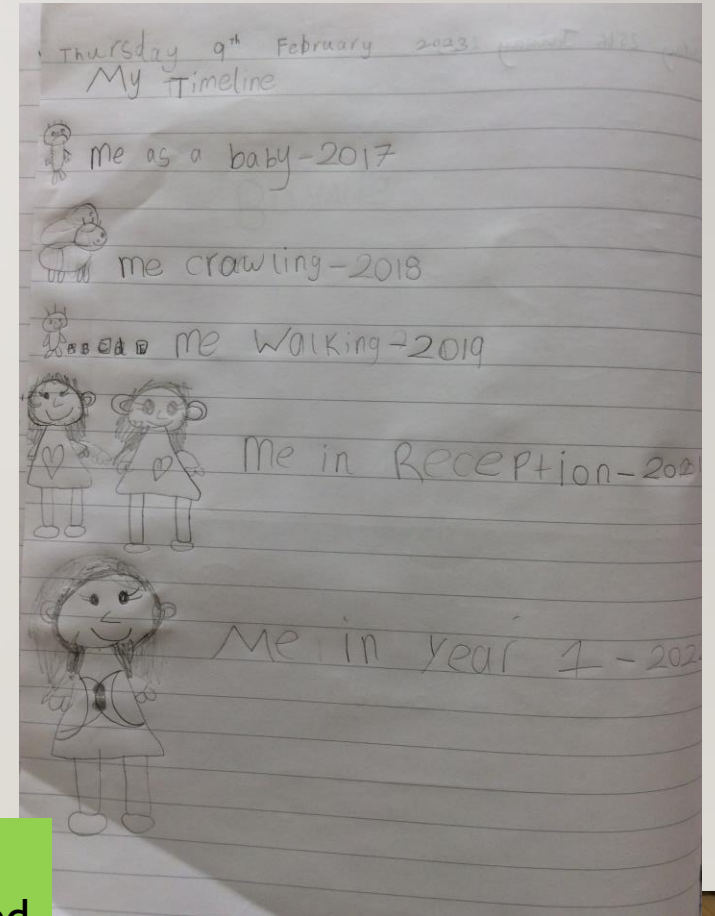 Thursday 9th February 2023
My Timeline
me as a baby-2017
me crawling-2018
A B C d E me walking-2019
Me in Reception-
Me in year 1 -